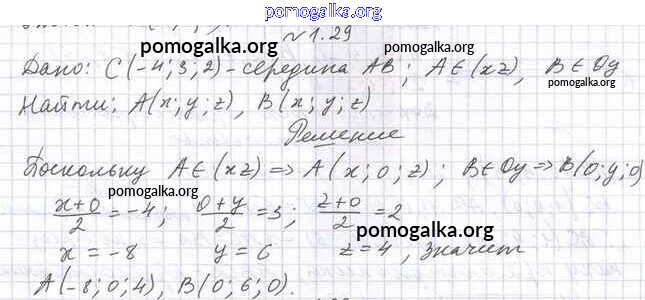 pomogalka.org
№1.29
pomogalka.org
pomogalka.org
Дано: C(-4; 3; 2) - середина AB; A∈(xz), B∈Oy
pomogalka.org
Найти: A(x; y; z), B(x; y; z)
Решение
Поскольку A∈(xz) => A(x; 0; z); B∈Oy => B(0; y; 0)
pomogalka.org
(x+0)/2 = -4; (0+y)/2 = 3; (z+0)/2 = 2
pomogalka.org
x = -8 y = 6 z = 4, значит
pomogalka.org
A(-8; 0; 4), B(0; 6; 0).